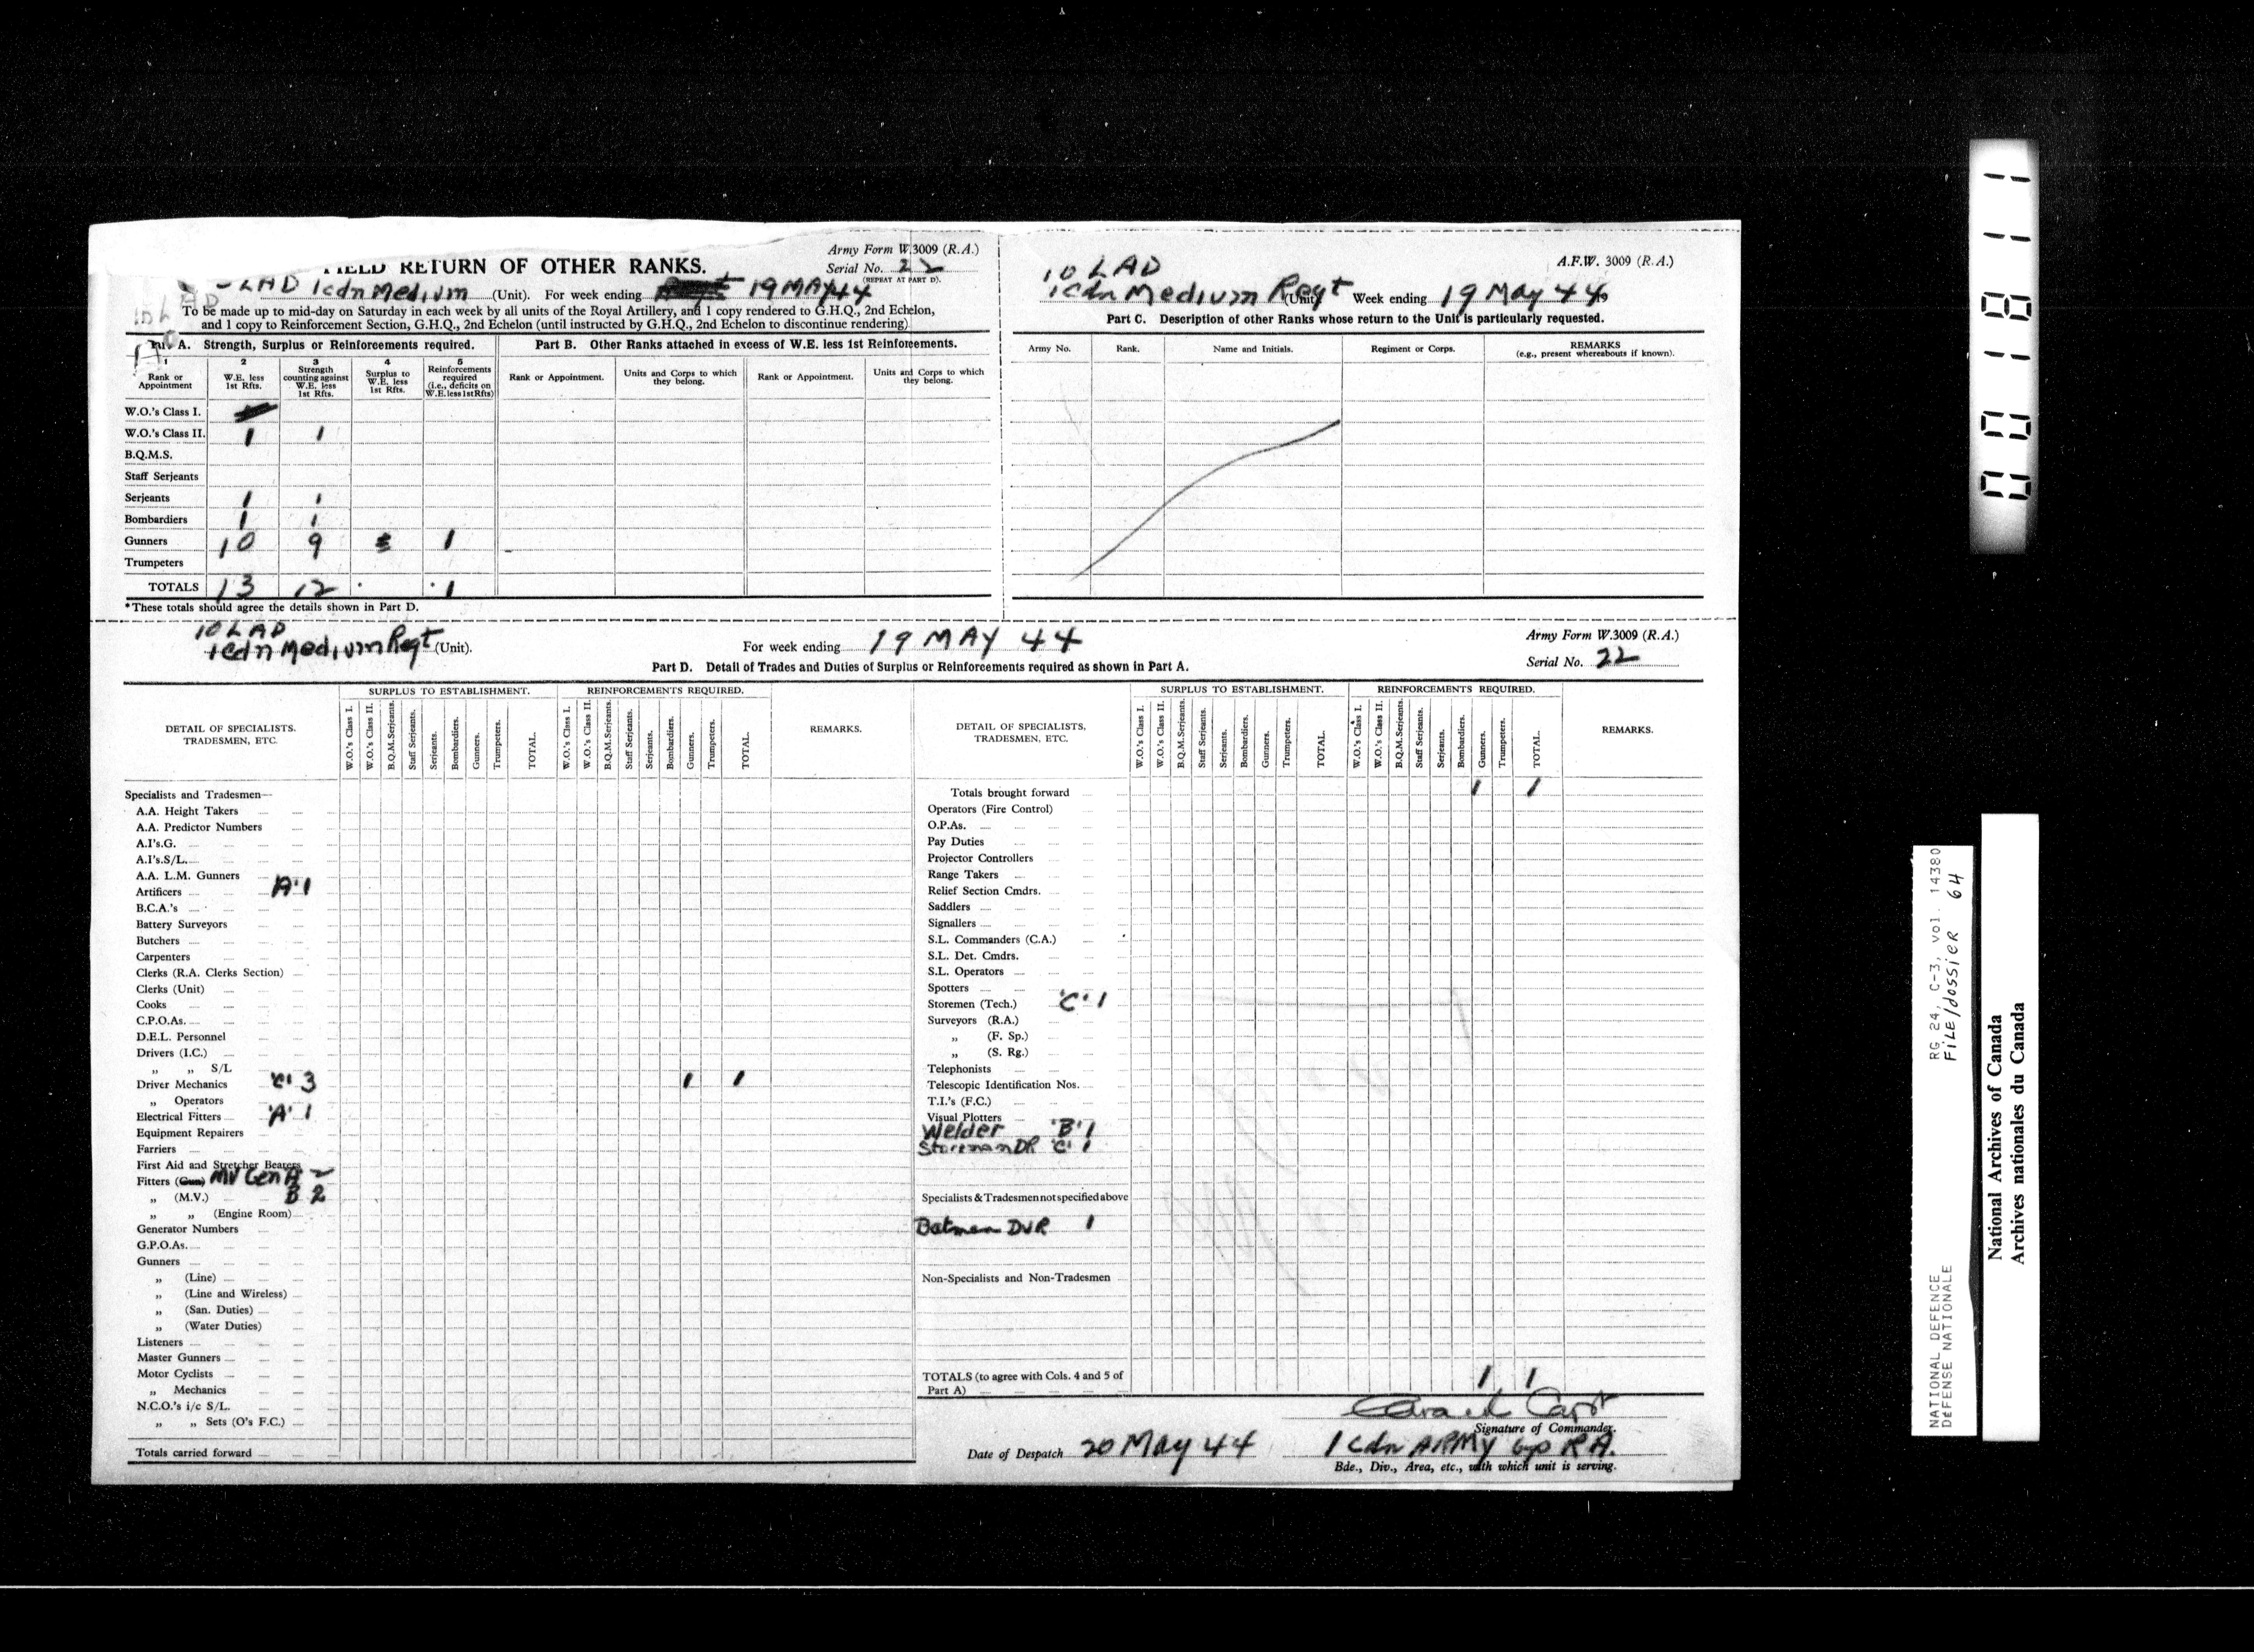 Army Form W.3009 (R.A.)
FIELD RETURN OF OTHER RANKS.
Serial No. 22
(REPEAT AT PART D).
- LAD 1 Cdn Medium (Unit). For week ending 19 MAY 44
To be made up to mid-day on Saturday in each week by all units of the Royal Artillery, and 1 copy rendered to G.H.Q., 2nd Echelon,
and 1 copy to Reinforcement Section, G.H.Q., 2nd Echelon (until instructed by G.H.Q., 2nd Echelon to discontinue rendering)
A. Strength, Surplus or Reinforcements required.
1 2 3 4 5
Rank or Appointment
W.E. less 1st Rfts.
Strength counting against W.E. less 1st Rfts.
Surplus to W.E. less 1st Rfts.
Reinforcements required (i.e., deficits on W.E. less 1st Rfts)
W.O.'s Class I.
W.O.'s Class II. 1 1
B.Q.M.S.
Staff Serjeants
Serjeants 1 1
Bombardiers 1 1
Gunners 10 9 1
Trumpeters
TOTALS 13 12 1
*These totals should agree the details shown in Part D.
Part B. Other Ranks attached in excess of W.E. less 1st Reinforcements.
Rank or Appointment.
Units and Corps to which they belong.
Rank or Appointment.
Units and Corps to which they belong.
A.F.W. 3009 (R.A.)
10 LAD
1 Cdn Medium Regt (Unit) Week ending 19 May 44
Part C. Description of other Ranks whose return to the Unit is particularly requested.
Army No. Rank. Name and Initials. Regiment or Corps. REMARKS
(e.g., present whereabouts if known).
10 LAD
1 Cdn Medium Regt (Unit). For week ending 19 MAY 44
Army Form W.3009 (R.A.)
Serial No. 22
Part D. Detail of Trades and Duties of Surplus or Reinforcements required as shown in Part A.
DETAIL OF SPECIALISTS, TRADESMEN, ETC.
SURPLUS TO ESTABLISHMENT.
W.O.'s Class I. W.O.'s Class II. B.Q.M.Serjeants. Staff Serjeants. Serjeants. Bombardiers. Gunners. Trumpeters. TOTAL.
REINFORCEMENTS REQUIRED.
W.O.'s Class I. W.O.'s Class II. B.Q.M.Serjeants. Staff Serjeants. Serjeants. Bombardiers. Gunners. Trumpeters. TOTAL.
REMARKS.
Specialists and Tradesmen—
A.A. Height Takers
A.A. Predictor Numbers
A.I's.G.
A.I's.S/L.
A.A. L.M. Gunners
Artificers 'A' 1
B.C.A.'s
Battery Surveyors
Butchers
Carpenters
Clerks (R.A. Clerks Section)
Clerks (Unit)
Cooks
C.P.O.As.
D.E.L. Personnel
Drivers (I.C.)
„ „ S/L
Driver Mechanics 'C' 3 1 1
„ Operators
Electrical Fitters 'A' 1
Equipment Repairers
Farriers
First Aid and Stretcher Bearers
Fitters (Gun) MV Gen A
„ (M.V.) B 2
„ „ (Engine Room)
Generator Numbers
G.P.O.As.
Gunners
„ (Line)
„ (Line and Wireless)
„ (San. Duties)
„ (Water Duties)
Listeners
Master Gunners
Motor Cyclists
„ Mechanics
N.C.O.'s i/c S/L.
„ „ Sets (O's F.C.)
Totals carried forward
DETAIL OF SPECIALISTS, TRADESMEN, ETC.
SURPLUS TO ESTABLISHMENT.
W.O.'s Class I. W.O.'s Class II. B.Q.M.Serjeants. Staff Serjeants. Serjeants. Bombardiers. Gunners. Trumpeters. TOTAL.
REINFORCEMENTS REQUIRED.
W.O.'s Class I. W.O.'s Class II. B.Q.M.Serjeants. Staff Serjeants. Serjeants. Bombardiers. Gunners. Trumpeters. TOTAL.
REMARKS.
Totals brought forward 1 1
Operators (Fire Control)
O.P.As.
Pay Duties
Projector Controllers
Range Takers
Relief Section Cmdrs.
Saddlers
Signallers
S.L. Commanders (C.A.)
S.L. Det. Cmdrs.
S.L. Operators
Spotters
Storemen (Tech.) 'C' 1
Surveyors (R.A.)
„ (F. Sp.)
„ (S. Rg.)
Telephonists
Telescopic Identification Nos.
T.I.'s (F.C.)
Visual Plotters
Welder 'B' 1
Storeman DR 'C' 1
Specialists & Tradesmen not specified above
Batman DVR 1
Non-Specialists and Non-Tradesmen
TOTALS (to agree with Cols. 4 and 5 of Part A) 1 1
Capt
Signature of Commander.
Date of Despatch 20 May 44
1 Cdn ARMY Gp RA.
Bde., Div., Area, etc., with which unit is serving.
001811
RG 24, C-3, vol. 14380
FILE/dossier 64
NATIONAL DEFENCE
DÉFENSE NATIONALE
National Archives of Canada
Archives nationales du Canada